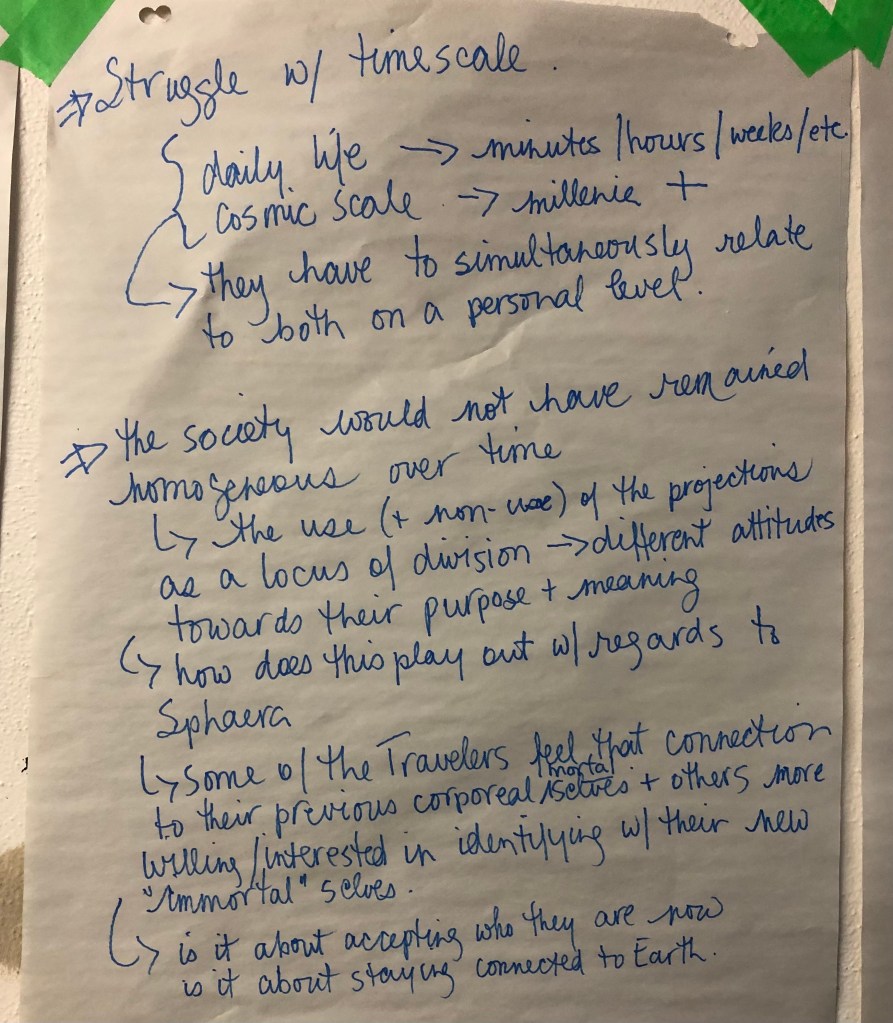 ⇒ Struggle w/ timescale.
daily life → minutes/hours/weeks/etc.
cosmic scale → millenia +
↳ they have to simultaneously relate
to both on a personal level.
⇒ the society would not have remained
homogeneous over time
↳ the use (+ non-use) of the projections
as a locus of division → different attitudes
towards their purpose + meaning
↳ how does this play out w/ regards to
Sphaera
↳ some o/ the Travelers feel that connection
to their previous corporeal/mortal selves + others more
willing/interested in identifying w/ their new
"immortal" selves.
↳ is it about accepting who they are now
is it about staying connected to Earth.